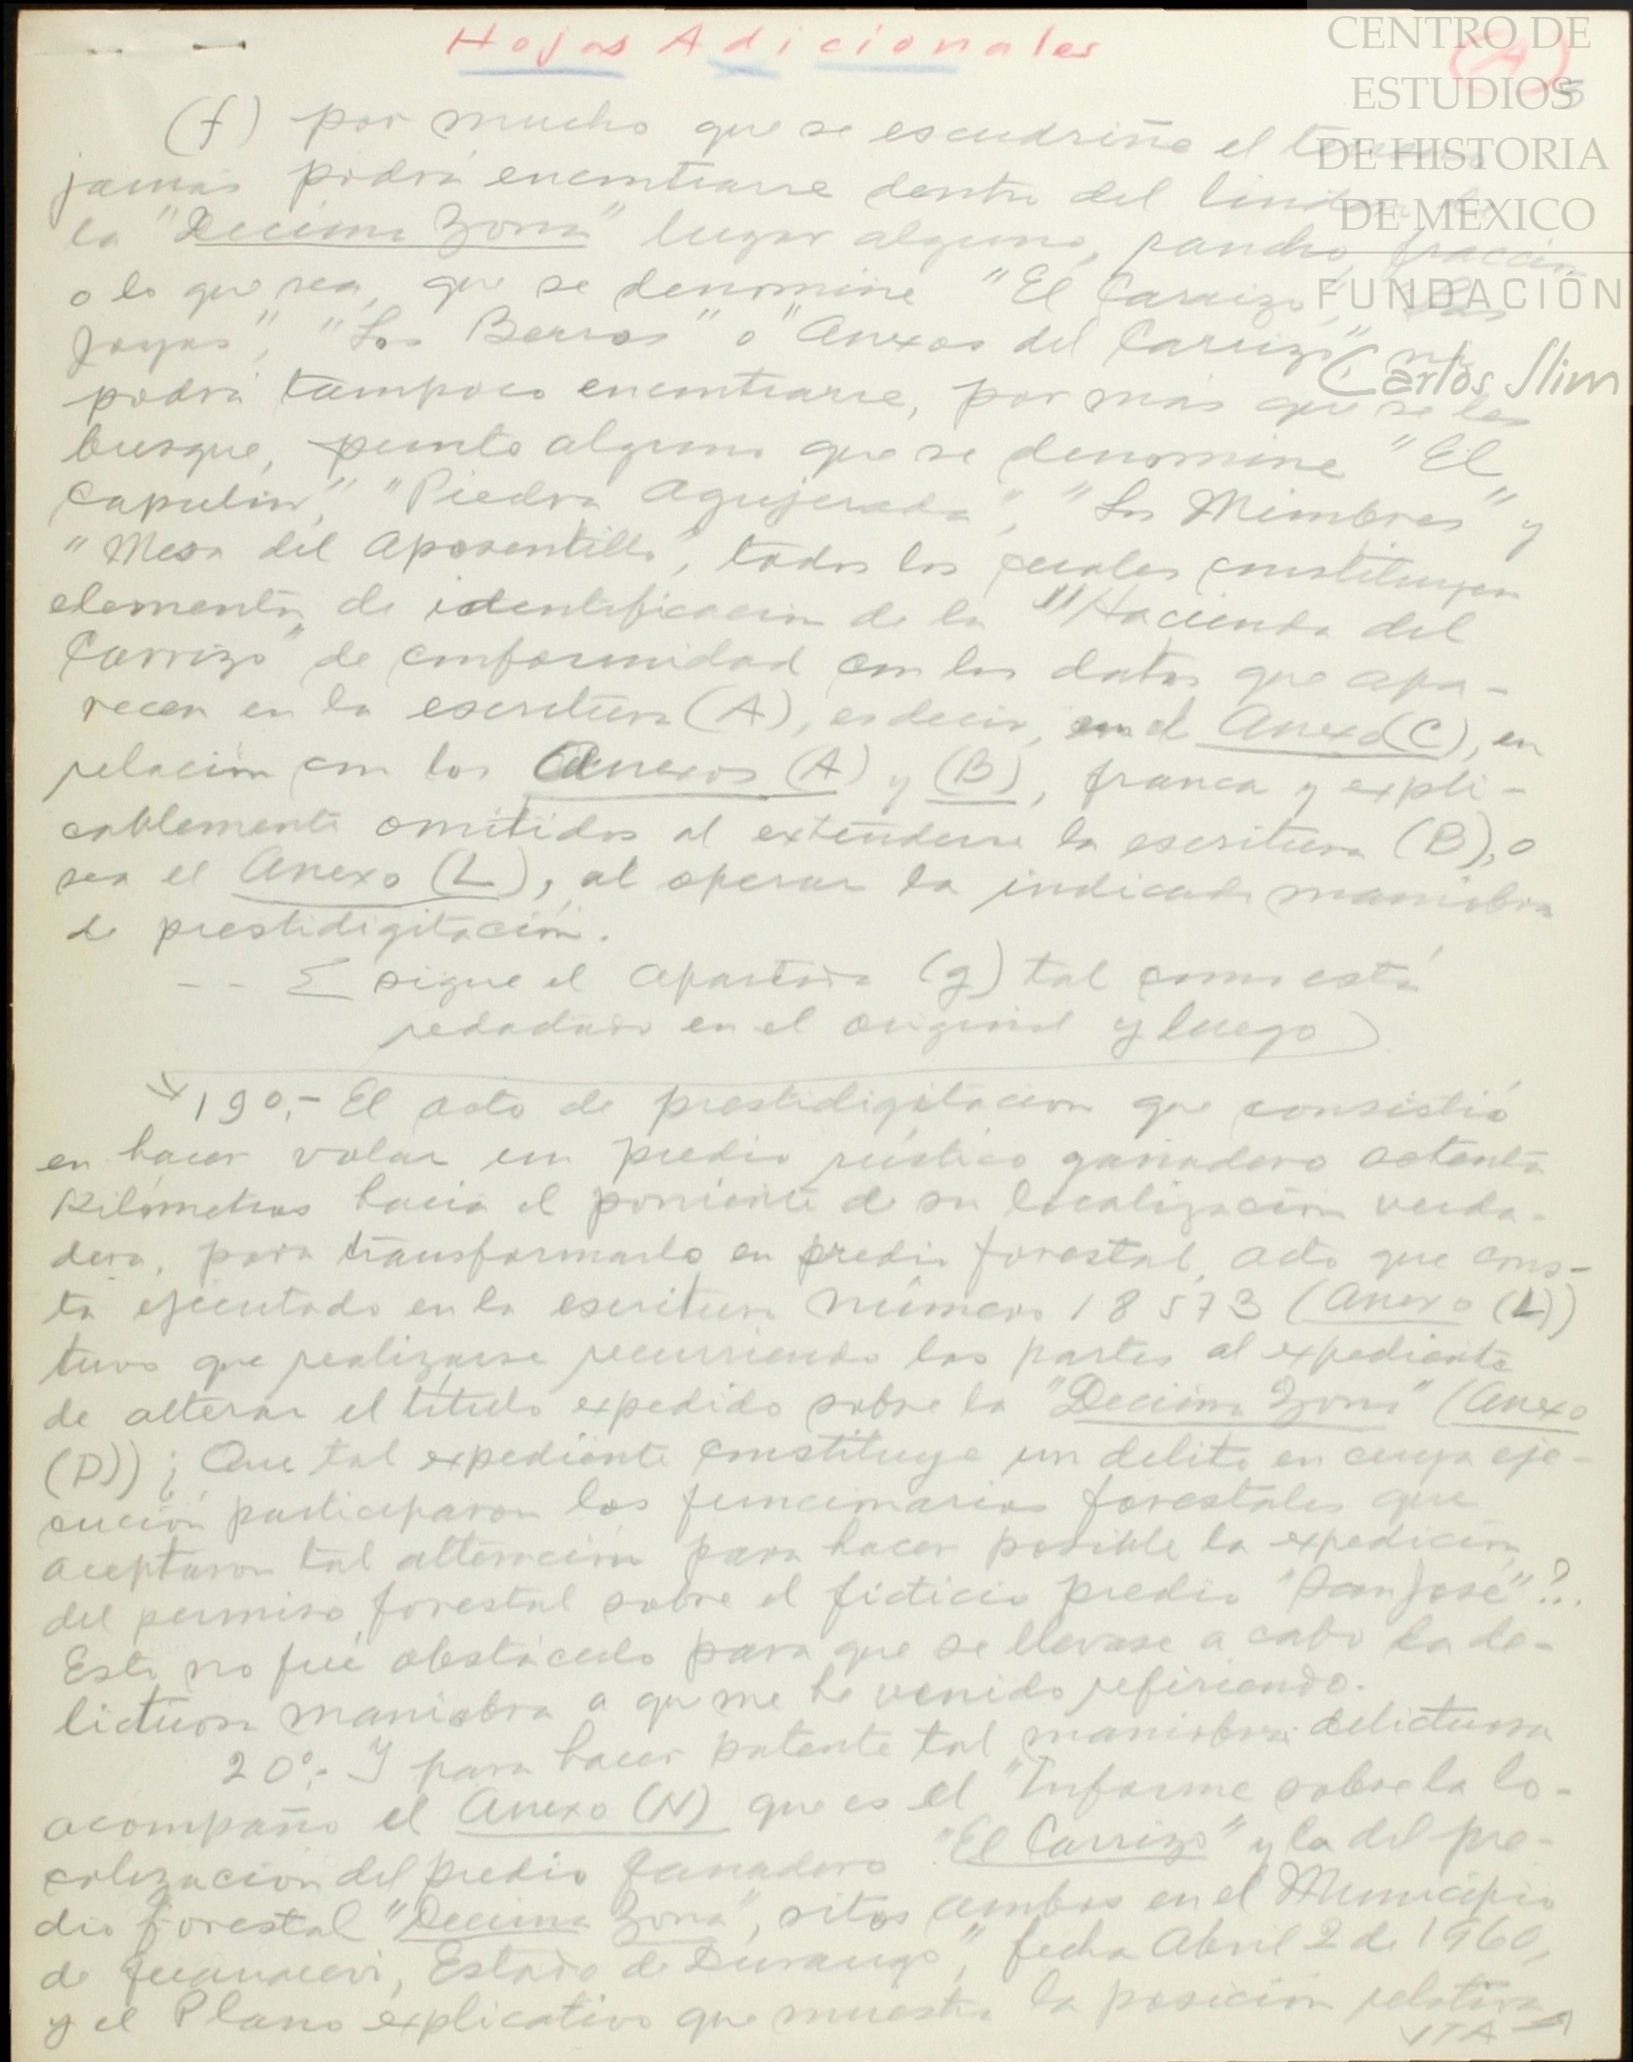 Hojas Adicionales
(A)
5
CENTRO DE
ESTUDIOS
DE HISTORIA
DE MÉXICO
FUNDACIÓN
Carlos Slim
(f) por mucho que se escudriñe el
jamás podrá encontrarse dentro del
la "Decima Zona" lugar alguno, rancho, fracción
o lo que sea, que se denomine "El Carrizo", "Las
Joyas", "Los Berros" o "Anexos del Carrizo", ni
podrá tampoco encontrarse, por más que se les
busque, punto alguno que se denomine "El
Capulin", "Piedra Agujerada", "Los Mimbres" y
"Mesa del Aposentillo", todos los cuales constituyen
elementos de identificacion de la "Hacienda del
Carrizo" de conformidad con los datos que apa-
recen en la escritura (A), es decir, en el Anexo (C), en
relación con los Anexos (A) y (B), franca y expli-
cablemente omitidos al extenderse la escritura (B), o
sea el Anexo (L), al operar la indicada maniobra
de prestidigitación.
-- sigue el apartado (g) tal como está
redactado en el original y luego)
19o.- El acto de prestidigitacion que consistió
en hacer volar un predio rústico ganadero ochenta
Kilómetros hacia el poniente de su localización verda-
dera, para transformarlo en predio forestal, acto que cons-
ta ejecutado en la escritura número 18573 (Anexo (L))
tuvo que realizarse recurriendo las partes al expediente
de alterar el título expedido sobre la "Decima Zona" (Anexo
(D)); ¿Que tal expediente constituye un delito en cuya eje-
cución participaron los funcionarios forestales que
aceptaron tal alteración para hacer posible la expedición
del permiso forestal sobre el ficticio predio "San José"?.
Esto no fué obstáculo para que se llevase a cabo la de-
lictuosa maniobra a que me he venido refiriendo.
20o.- Y para hacer patente tal maniobra delictuosa
acompaño el Anexo (N) que es el "Informe sobre la lo-
calizacion del predio ganadero "El Carrizo" y la del pre-
dio forestal "Decima Zona", sitos ambos en el Municipio
de Guanacevi, Estado de Durango", fecha Abril 2 de 1960,
y el Plano explicativo que muestra la posición relativa
VTA